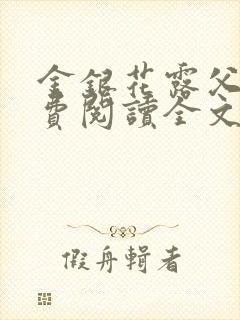 金銀花露父
費閱讀全文
假舟輯者